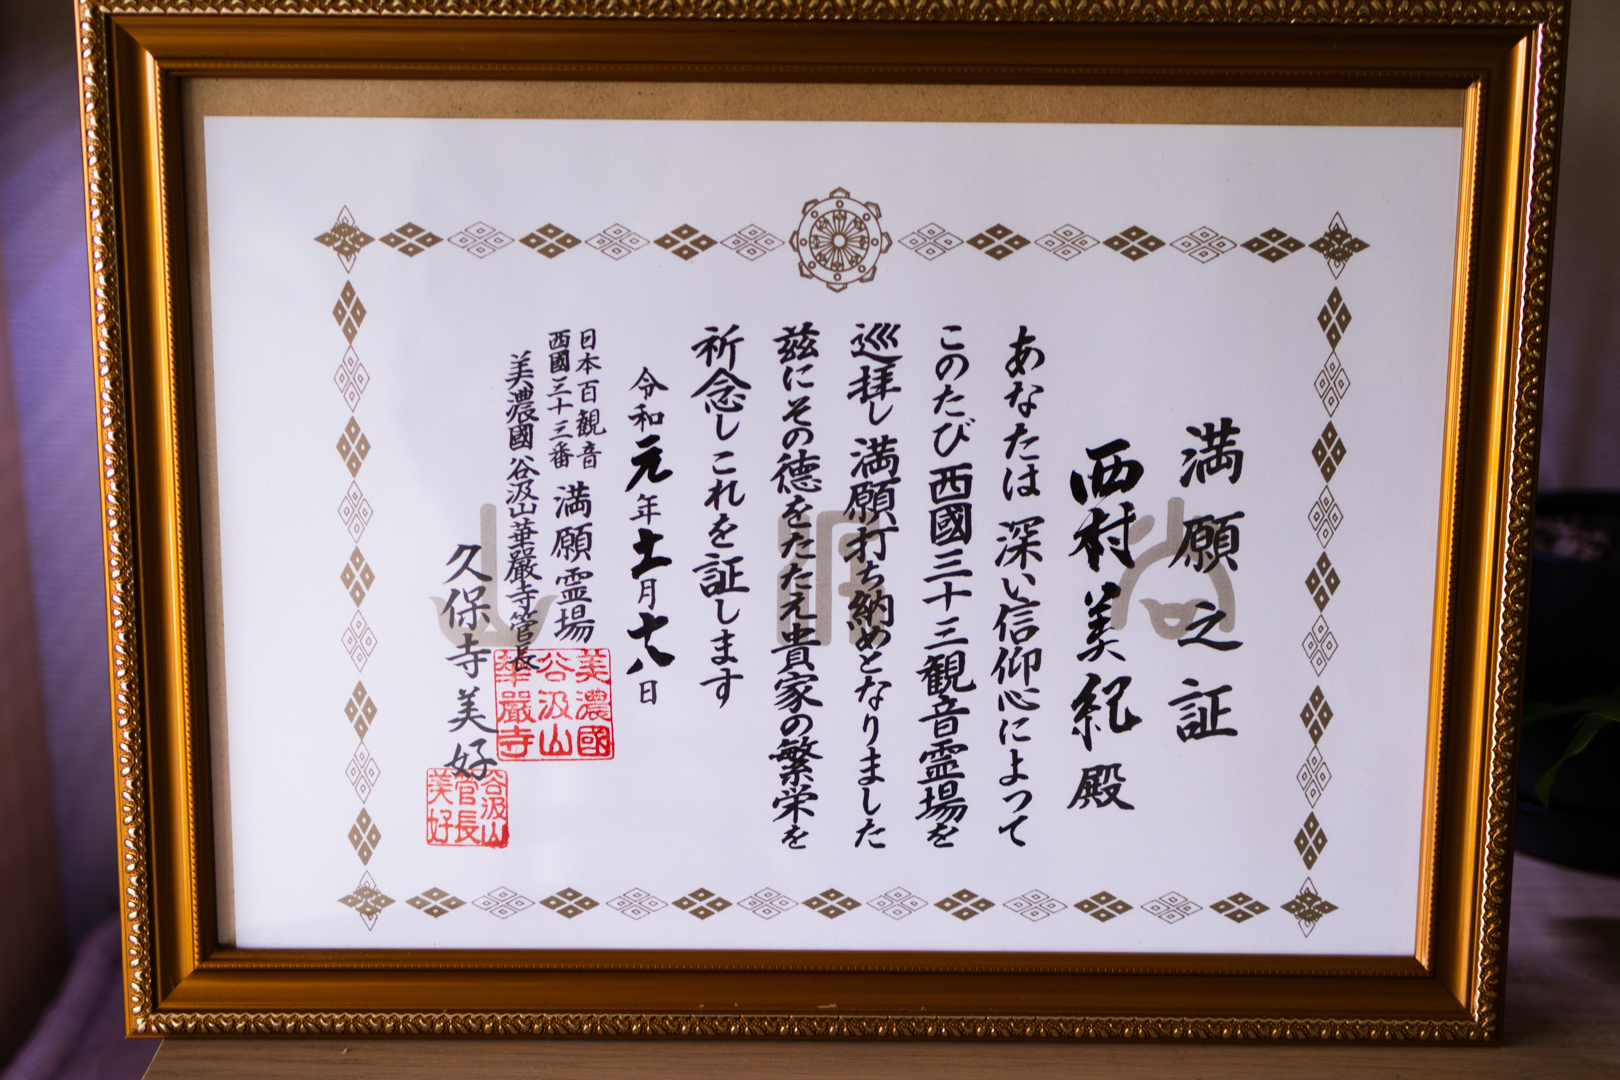 満願之証
西村美紀殿
あなたは深い信仰心によって
このたび西國三十三観音霊場を
巡拝し満願打ち納めとなりました
茲にその徳をたたえ貴家の繁栄を
祈念しこれを証します
令和元年十一月十八日
日本百観音
西國三十三番
満願霊場
美濃國谷汲山華嚴寺管長
久保寺美好
美濃國
谷汲山
華嚴寺
谷汲山
管長
美好
谷汲山